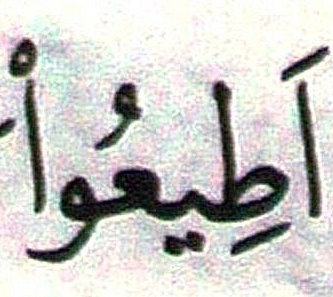 اَطِيعُواْ